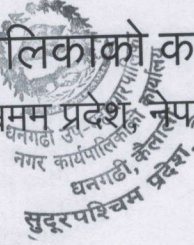 लिकाको क
मम प्रदेश, नेप
धनगढी उप-
नगर कार्यपालिकाको कार्यालय
धनगढी, कैलाली
सुदूरपश्चिम प्रदेश,